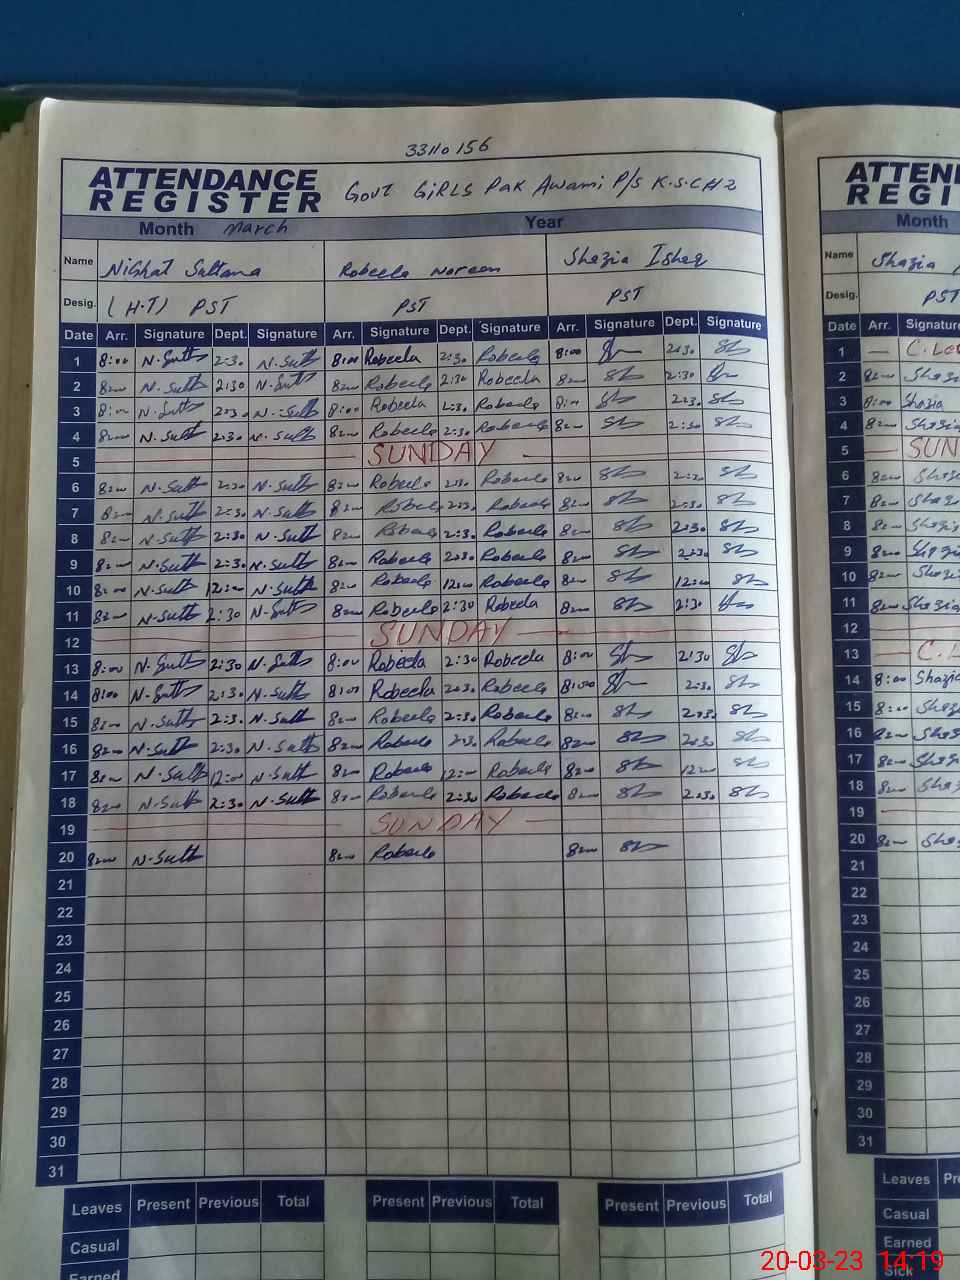 33110156
ATTENDANCE REGISTER Govt GiRLS Pak Awami P/S K.S.CH 2
Month March Year
Name Nighat Sultana Robeela Noreen Shazia Ishaq
Desig. (H.T) PST PST PST
Date Arr. Signature Dept. Signature Arr. Signature Dept. Signature Arr. Signature Dept. Signature
1 8:00 N.Sult 2:30 N.Sult 8:00 Robeela 2:30 Robeela 8:00 2:30
2 8:00 N.Sult 2:30 N.Sult 8:00 Robeela 2:30 Robeela 8:00 2:30
3 8:00 N.Sult 2:30 N.Sult 8:00 Robeela 2:30 Robeela 8:00 2:30
4 8:00 N.Sult 2:30 N.Sult 8:00 Robeela 2:30 Robeela 8:00 2:30
5 SUNDAY
6 8:00 N.Sult 2:30 N.Sult 8:00 Robeela 2:30 Robeela 8:00 2:30
7 8:00 N.Sult 2:30 N.Sult 8:00 Robeela 2:30 Robeela 8:00 2:30
8 8:00 N.Sult 2:30 N.Sult 8:00 Robeela 2:30 Robeela 8:00 2:30
9 8:00 N.Sult 2:30 N.Sult 8:00 Robeela 2:30 Robeela 8:00 2:30
10 8:00 N.Sult 12:00 N.Sult 8:00 Robeela 12:00 Robeela 8:00 12:00
11 8:00 N.Sult 2:30 N.Sult 8:00 Robeela 2:30 Robeela 8:00 2:30
12 SUNDAY
13 8:00 N.Sult 2:30 N.Sult 8:00 Robeela 2:30 Robeela 8:00 2:30
14 8:00 N.Sult 2:30 N.Sult 8:00 Robeela 2:30 Robeela 8:00 2:30
15 8:00 N.Sult 2:30 N.Sult 8:00 Robeela 2:30 Robeela 8:00 2:30
16 8:00 N.Sult 2:30 N.Sult 8:00 Robeela 2:30 Robeela 8:00 2:30
17 8:00 N.Sult 12:00 N.Sult 8:00 Robeela 12:00 Robeela 8:00 12:00
18 8:00 N.Sult 2:30 N.Sult 8:00 Robeela 2:30 Robeela 8:00 2:30
19 SUNDAY
20 8:00 N.Sult 8:00 Robeela 8:00
21
22
23
24
25
26
27
28
29
30
31
Leaves Present Previous Total Present Previous Total Present Previous Total
Casual
Earned
ATTEN
REGI
Month
Name Shazia
Desig. PST
Date Arr. Signatu
1 C. Le
2 8:00 Shazi
3 8:00 Shazia
4 8:00 Shazia
5 SUN
6 8:00 Shaz
7 8:00 Shaz
8 8:00 Shazi
9 8:00 Shazi
10 8:00 Shazi
11 8:00 Shazia
12
13 C.L
14 8:00 Shazia
15 8:00 Shaz
16 8:00 Shaz
17 8:00 Shaz
18 8:00 Shaz
19
20 8:00 Shaz
21
22
23
24
25
26
27
28
29
30
31
Leaves Pre
Casual
Earned
Sick
20-03-23 14:19